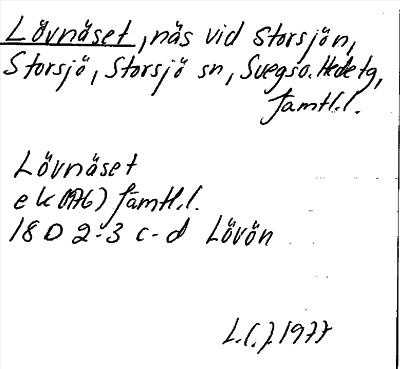 Lövnäset, näs vid Storsjön,
Storsjö, Storsjö sn, Svegs o. Hede tg,
Jämtl.l.
Lövnäset
ek (1976) Jämtl.l.
18 D 2-3 c-d Lövön
L.C.J. 1977